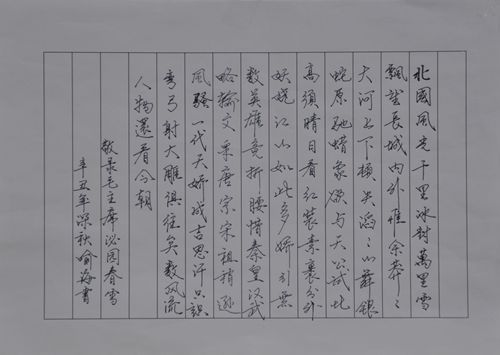 北國風光千里冰封萬里雪
飄望長城內外惟余莽〻
大河上下頓失滔〻山舞銀
蛇原馳蜡象欲与天公試比
高須晴日看红装素裹分外
妖娆江山如此多嬌引無
数英雄竞折腰惜秦皇汉武
略输文采唐宗宋祖稍逊
風骚一代天骄成吉思汗只識
弯弓射大雕俱往矣数风流
人物還看今朝
敬录毛主席沁园春雪
辛丑年深秋俞海書